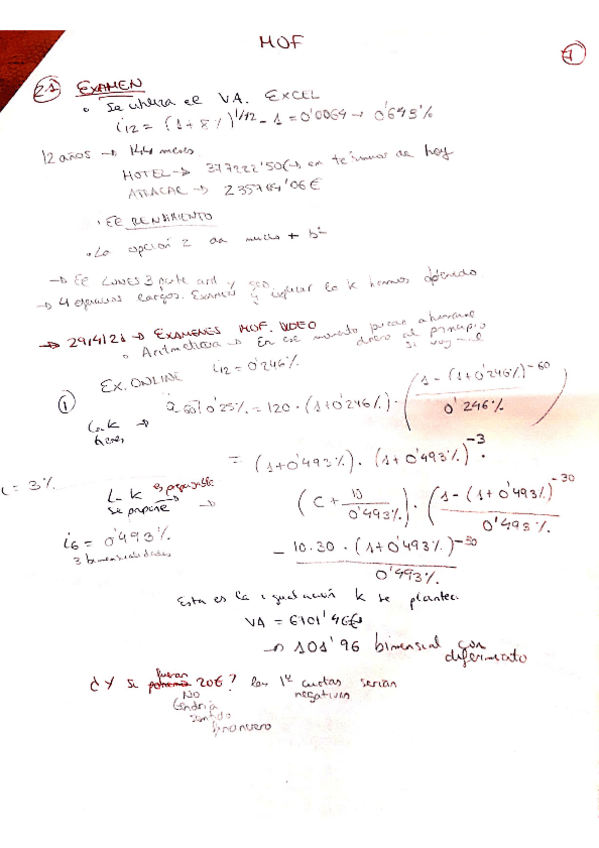 MOF
7
21) EXAMEN
• Se utiliza el VA. EXCEL
i12 = (1+8%)^1/12 - 1 = 0'0064 → 0'643%
12 años → 144 meses
HOTEL → 377222'50€, en términos de hoy
→ 235764'06€
• EL RENDIMIENTO
• La opción 2 da mucho + bº
→ EL LUNES 3 parte arit y geo
→ 4 ejercicios largos. Examen y explicar lo k hemos obtenido
→ 29/4/21 → EXAMENES MOF. VIDEO
• Aritmética → En ese momento puede ahorrar
dinero al principio
si
EX. ONLINE i12 = 0'246%
① a60 0'25% = 120 · (1+0'246%) · ( 1 - (1+0'246%)^-60 / 0'246% )
Lo k tienes →
= (1+0'493%) · (1+0'493%)^-3 ·
i = 3%
L- k es preferible
se propone →
(C + 10 / 0'493%) · ( 1 - (1+0'493%)^-30 / 0'493% )
i6 = 0'493%
3 bimensualidades
- 10·30 · (1+0'493%)^-30 / 0'493%
Esta es la igualación k se plantea
VA = 6101'46€
→ 101'96 bimensual con
diferimiento
¿Y si fueran 20€? las 1ª cuotas serían
negativas
No
tendría
sentido
financiero